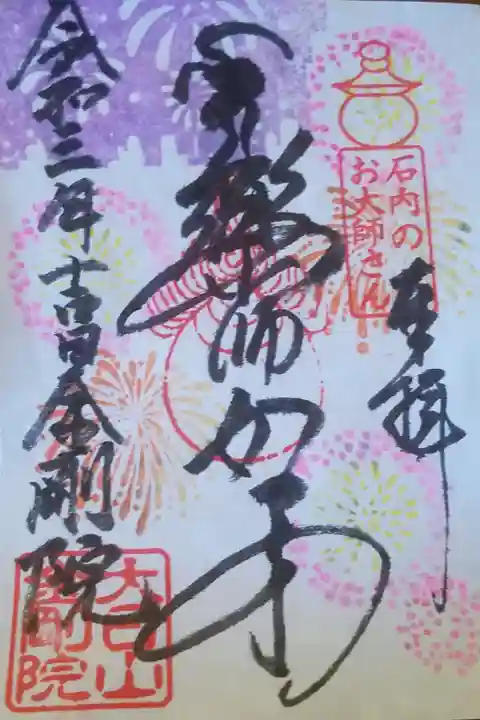 石内の
お大師さん
奉拝
薬師如来
令和三年吉日金剛院
大日山
金剛院